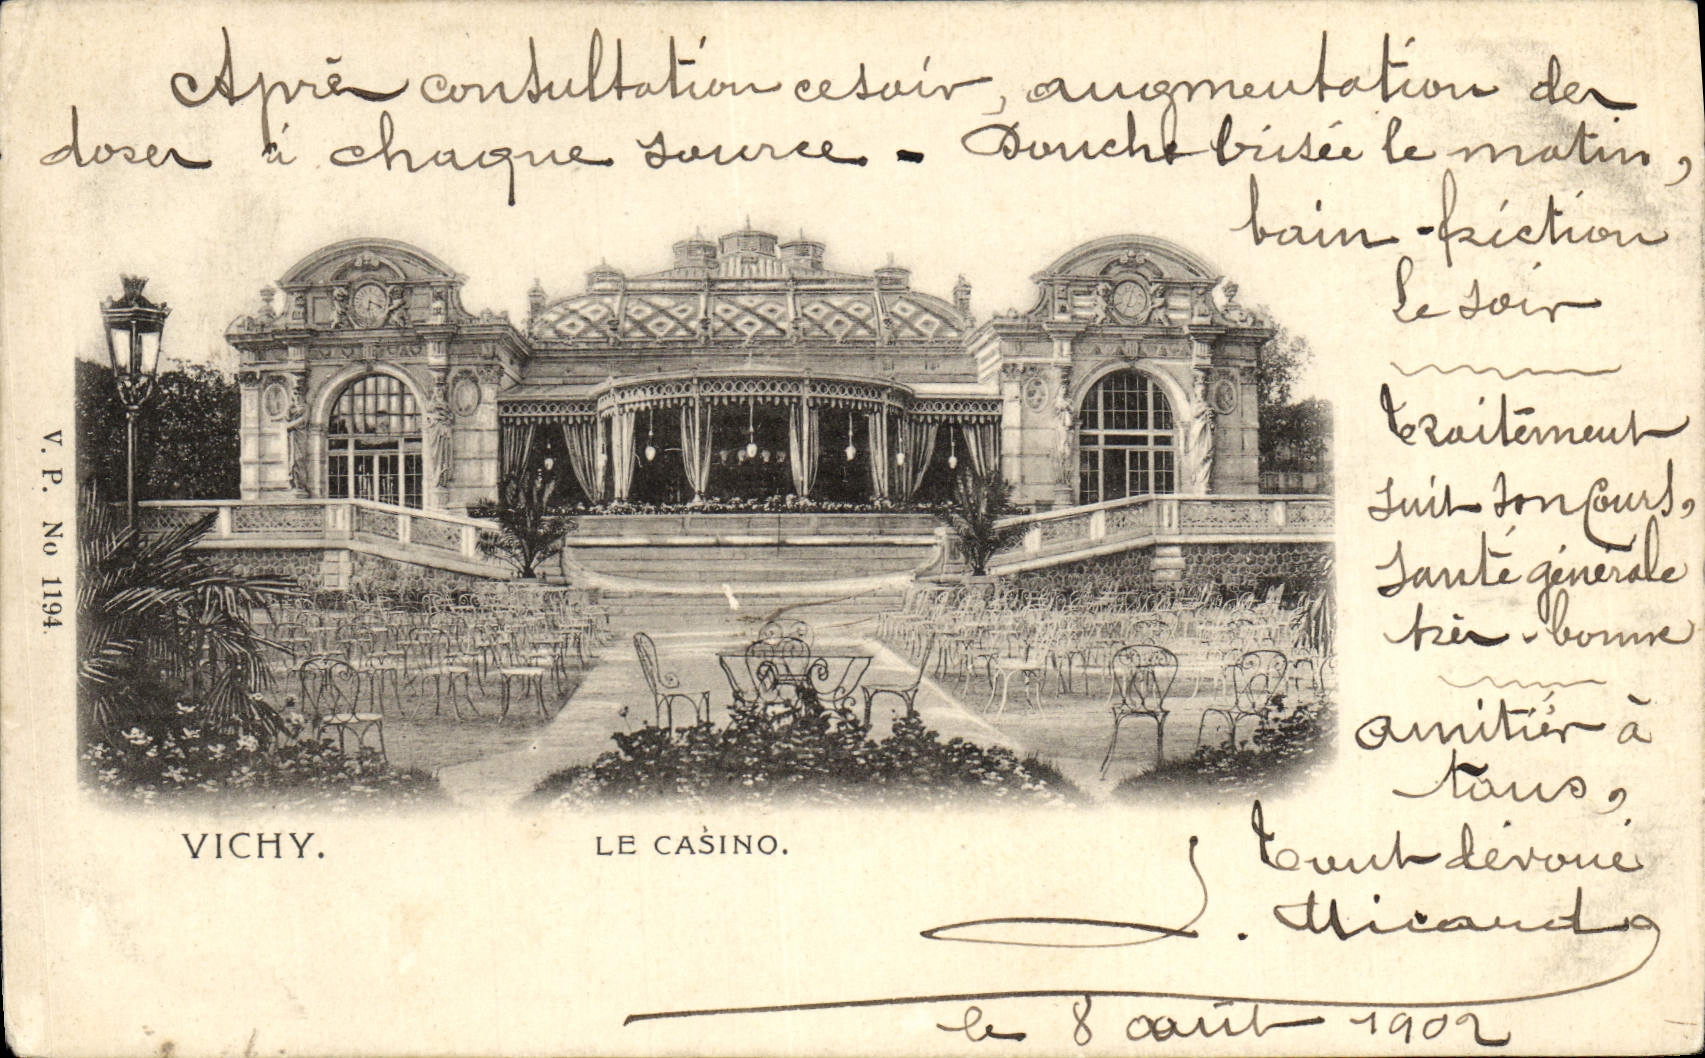 Après consultation ce soir, augmentation des
doses à chaque source - Douche brisée le matin,
bain - friction
le soir
traitement
suit son Cours,
santé générale
très - bonne
amitiés à
tous,
tout dévoué
J. Micard
le 8 août 1902
V. P. No 1194.
VICHY.
LE CASINO.